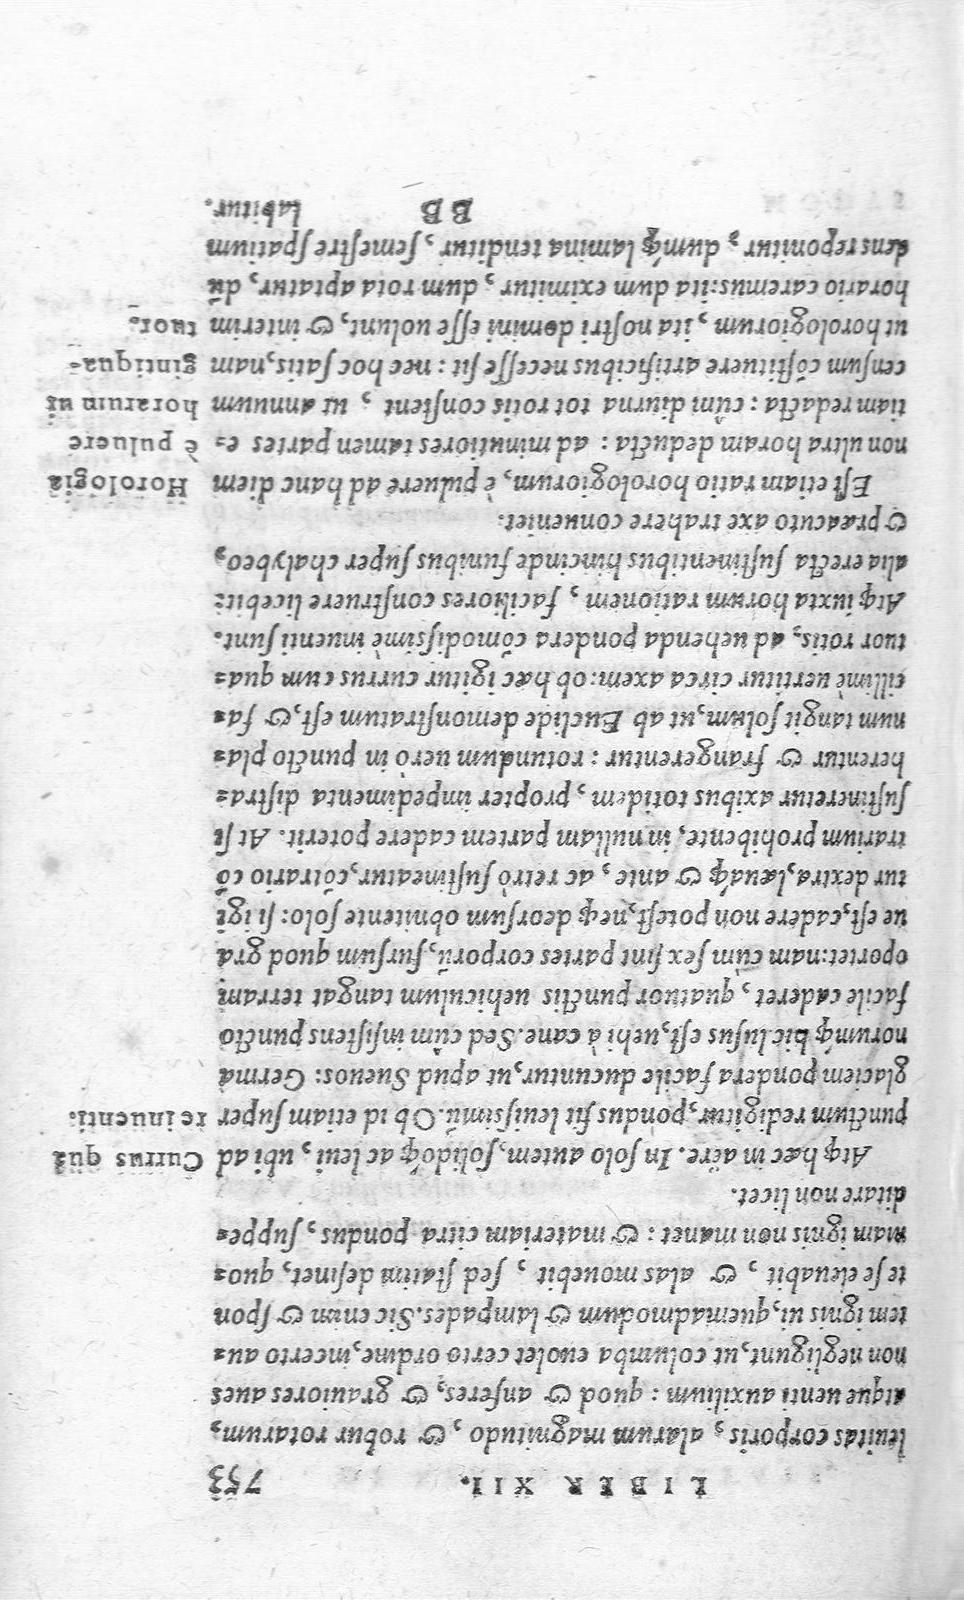 LIBER XII. 753
leuitas corporis, alarum magnitudo, & robur rotarum,
atque uenti auxilium: quod & anseres, & grauiores aues
non negligunt, ut columba euolet certo ordine, incerto au=
tem ignis ui, quemadmodum & lampades. Sic enim & spon
te se eleuabit, & alas mouebit, sed statim desinet, quo=
niam ignis non manet: & materiam citra pondus, suppe=
ditare non licet.
Atq; hæc in aëre. In solo autem, solidóq; ac leui, ubi ad
Currus quã
punctum redigitur, pondus fit leuissimũ. Ob id etiam super
re inuenti.
glaciem pondera facile ducuntur, ut apud Sueuos: Germa
norumq́; hic lusus est, uehi à cane. Sed cùm insistens puncto
facile caderet, quatuor punctis uehiculum tangat terram
oportet: nam cùm sex sint partes corporũ, sursum quod gra
ue est, cadere non potest, neq; deorsum obnitente solo: si igi
tur dextra, læuáq; & ante, ac retrò sustineatur, cõtrario cõ
trarium prohibente, in nullam partem cadere poterit. At si
sustineretur axibus totidem, propter impedimenta distra=
herentur & frangerentur: rotundum uerò in puncto pla=
num tangit solum, ut ab Euclide demonstratum est, & fa=
cillimè uertitur circa axem: ob hæc igitur currus cum qua=
tuor rotis, ad uehenda pondera cõmodissimè inuenti sunt.
Atq; iuxta horum rationem, faciliores construere licebit:
alia erecta sustinentibus hincinde funibus super chalybeo,
& præacuto axe trahere conueniet.
Est etiam ratio horologiorum, è puluere ad hanc diem
Horologia
non ultra horam deducta: ad minutiores tamen partes e=
è puluere
tiam redacta: cùm diurna tot rotis constent, ut annuum
horarum ui
censum cõstituere artificibus necesse sit: nec hoc satis, nam
gintiqua=
ut horologiorum, ita nostri domini esse uolunt, & interim
tuor.
horario caremus: ita dum eximitur, dum rota aptatur, dũ
dens reponitur, dumq́; lamina tenditur, semestre spatium
BB labitur.